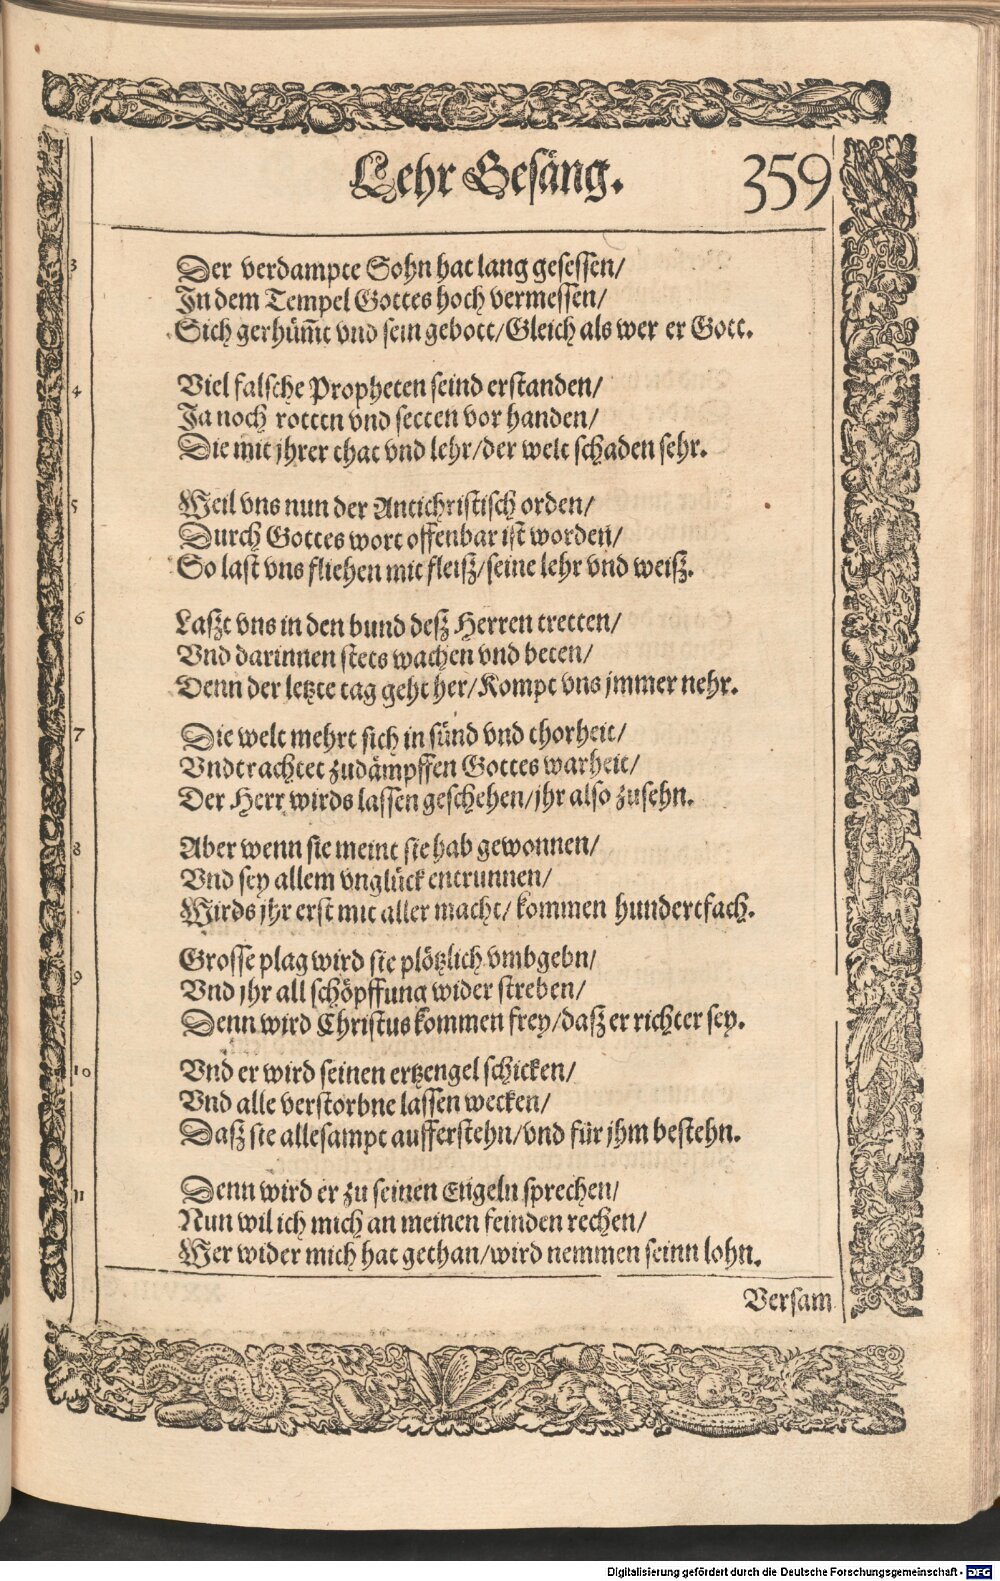 Lehr Gesäng. 359
3 Der verdampte Sohn hat lang gesessen/
In dem Tempel Gottes hoch vermessen/
Sich gerhüm̃t vnd sein gebott/Gleich als wer er Gott.
4 Viel falsche Propheten seind erstanden/
Ja noch rotten vnd secten vor handen/
Die mit jhrer that vnd lehr/der welt schaden sehr.
5 Weil vns nun der Antichristisch orden/
Durch Gottes wort offenbar ist worden/
So last vns fliehen mit fleiß/seine lehr vnd weiß.
6 Laßt vns in den bund deß Herren tretten/
Vnd darinnen stets wachen vnd beten/
Denn der letzte tag geht her/Kompt vns jmmer nehr.
7 Die welt mehrt sich in sünd vnd thorheit/
Vndtrachtet zudämpffen Gottes warheit/
Der Herr wirds lassen geschehen/jhr also zusehn.
8 Aber wenn sie meint sie hab gewonnen/
Vnd sey allem vnglück entrunnen/
Wirds jhr erst mit aller macht/kommen hundertfach.
9 Grosse plag wird sie plötzlich vmbgebn/
Vnd jhr all schöpffung wider streben/
Denn wird Christus kommen frey/daß er richter sey.
10 Vnd er wird seinen ertzengel schicken/
Vnd alle verstorbne lassen wecken/
Daß sie allesampt aufferstehn/vnd für jhm bestehn.
11 Denn wird er zu seinen Engeln sprechen/
Nun wil ich mich an meinen feinden rechen/
Wer wider mich hat gethan/wird nemmen seinn lohn.
Versam
Digitalisierung gefördert durch die Deutsche Forschungsgemeinschaft - DFG